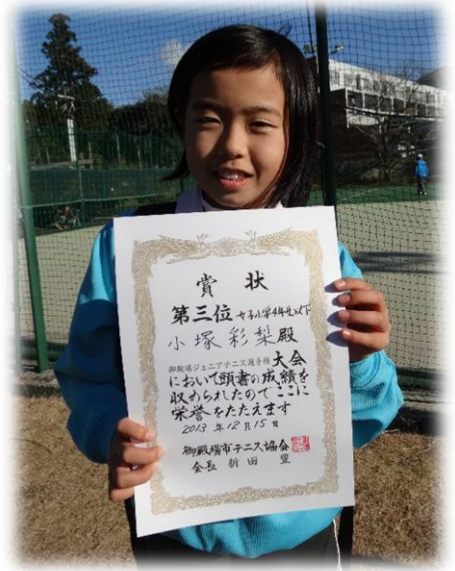 賞状
第三位 女子小学4年生以下
小塚彩梨殿
御殿場ジュニアテニス選手権大会
において頭書の成績を
収められたのでここに
栄誉をたたえます
2013年12月15日
御殿場市テニス協会
会長 新田 豊